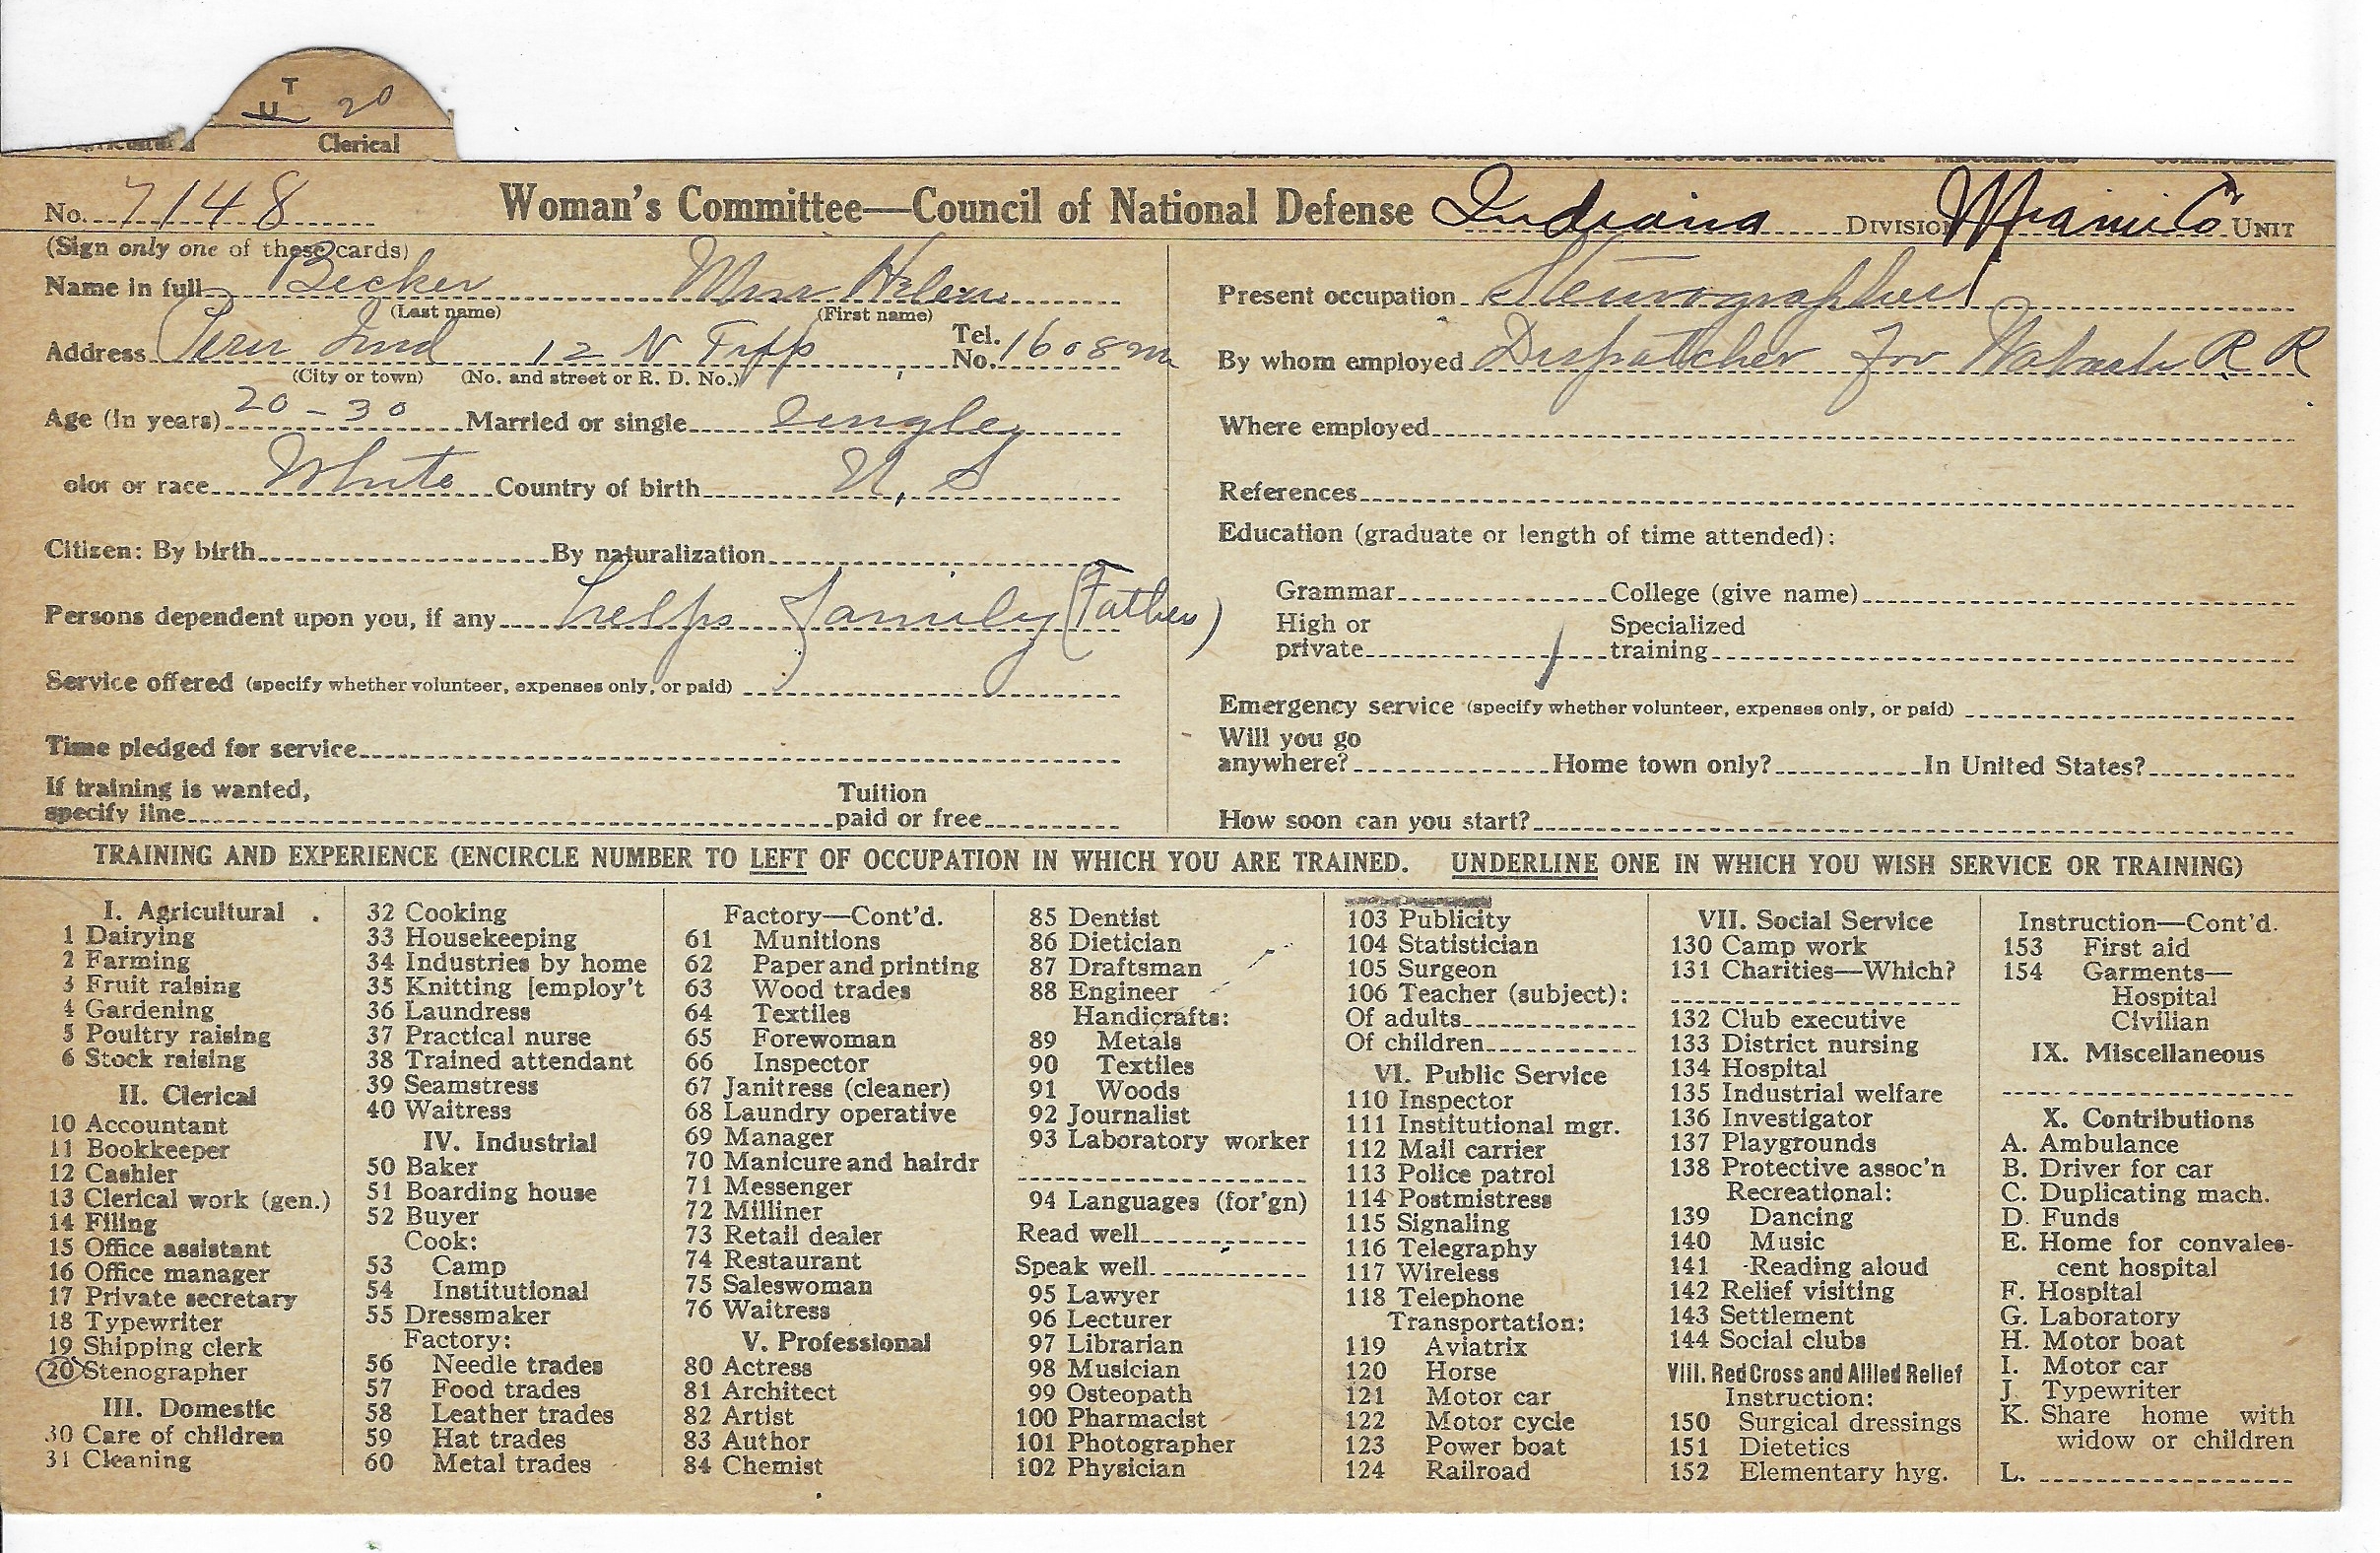 T
U 20
Clerical
No. 7148 Woman's Committee—Council of National Defense Indiana DIVISION Miami Co UNIT
(Sign only one of these cards)
Name in full Becker Miss Helen
(Last name) (First name)
Address Peru Ind 12 N Tipp Tel. No. 1608m
(City or town) (No. and street or R. D. No.)
Age (in years) 20-30 Married or single Single
olor or race White Country of birth U. S
Citizen: By birth By naturalization
Persons dependent upon you, if any helps family (Father)
Service offered (specify whether volunteer, expenses only, or paid)
Time pledged for service
If training is wanted,
specify line Tuition paid or free
Present occupation Stenographer
By whom employed Dispatcher for Wabash R R
Where employed
References
Education (graduate or length of time attended):
Grammar College (give name)
High or private Specialized training
Emergency service (specify whether volunteer, expenses only, or paid)
Will you go
anywhere? Home town only? In United States?
How soon can you start?
TRAINING AND EXPERIENCE (ENCIRCLE NUMBER TO LEFT OF OCCUPATION IN WHICH YOU ARE TRAINED. UNDERLINE ONE IN WHICH YOU WISH SERVICE OR TRAINING)
I. Agricultural
1 Dairying
2 Farming
3 Fruit raising
4 Gardening
5 Poultry raising
6 Stock raising
II. Clerical
10 Accountant
11 Bookkeeper
12 Cashier
13 Clerical work (gen.)
14 Filing
15 Office assistant
16 Office manager
17 Private secretary
18 Typewriter
19 Shipping clerk
20 Stenographer
III. Domestic
30 Care of children
31 Cleaning
32 Cooking
33 Housekeeping
34 Industries by home
35 Knitting [employ't
36 Laundress
37 Practical nurse
38 Trained attendant
39 Seamstress
40 Waitress
IV. Industrial
50 Baker
51 Boarding house
52 Buyer
Cook:
53 Camp
54 Institutional
55 Dressmaker
Factory:
56 Needle trades
57 Food trades
58 Leather trades
59 Hat trades
60 Metal trades
Factory—Cont'd.
61 Munitions
62 Paper and printing
63 Wood trades
64 Textiles
65 Forewoman
66 Inspector
67 Janitress (cleaner)
68 Laundry operative
69 Manager
70 Manicure and hairdr
71 Messenger
72 Milliner
73 Retail dealer
74 Restaurant
75 Saleswoman
76 Waitress
V. Professional
80 Actress
81 Architect
82 Artist
83 Author
84 Chemist
85 Dentist
86 Dietician
87 Draftsman
88 Engineer
Handicrafts:
89 Metals
90 Textiles
91 Woods
92 Journalist
93 Laboratory worker
94 Languages (for'gn)
Read well
Speak well
95 Lawyer
96 Lecturer
97 Librarian
98 Musician
99 Osteopath
100 Pharmacist
101 Photographer
102 Physician
103 Publicity
104 Statistician
105 Surgeon
106 Teacher (subject):
Of adults
Of children
VI. Public Service
110 Inspector
111 Institutional mgr.
112 Mail carrier
113 Police patrol
114 Postmistress
115 Signaling
116 Telegraphy
117 Wireless
118 Telephone
Transportation:
119 Aviatrix
120 Horse
121 Motor car
122 Motor cycle
123 Power boat
124 Railroad
VII. Social Service
130 Camp work
131 Charities—Which?
132 Club executive
133 District nursing
134 Hospital
135 Industrial welfare
136 Investigator
137 Playgrounds
138 Protective assoc'n
Recreational:
139 Dancing
140 Music
141 Reading aloud
142 Relief visiting
143 Settlement
144 Social clubs
VIII. Red Cross and Allied Relief
Instruction:
150 Surgical dressings
151 Dietetics
152 Elementary hyg.
Instruction—Cont'd.
153 First aid
154 Garments—
Hospital
Civilian
IX. Miscellaneous
X. Contributions
A. Ambulance
B. Driver for car
C. Duplicating mach.
D. Funds
E. Home for convales-
cent hospital
F. Hospital
G. Laboratory
H. Motor boat
I. Motor car
J. Typewriter
K. Share home with
widow or children
L.